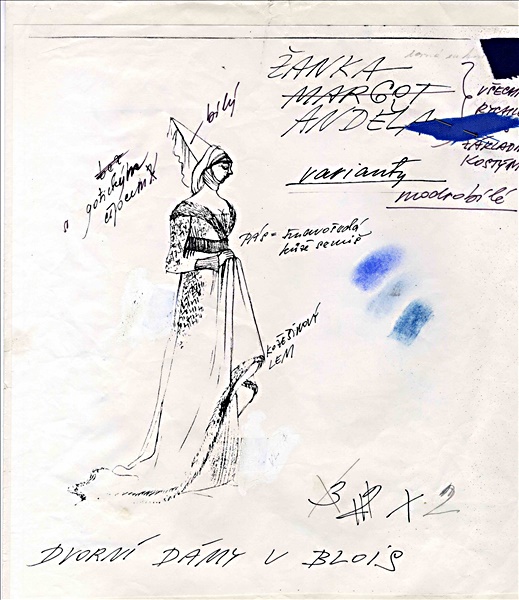 ŽANKA
MARGOT
ANDĚLA
VŠECH
RYCHL
ZÁKLADN
KOSTYM
varianty
modrobílé
bílý
gotickým
PÁS = tmavošedá
kůže semiš
KOŽEŠINOVÝ
LEM
3 # X 2
DVORNÍ DÁMY V BLOIS